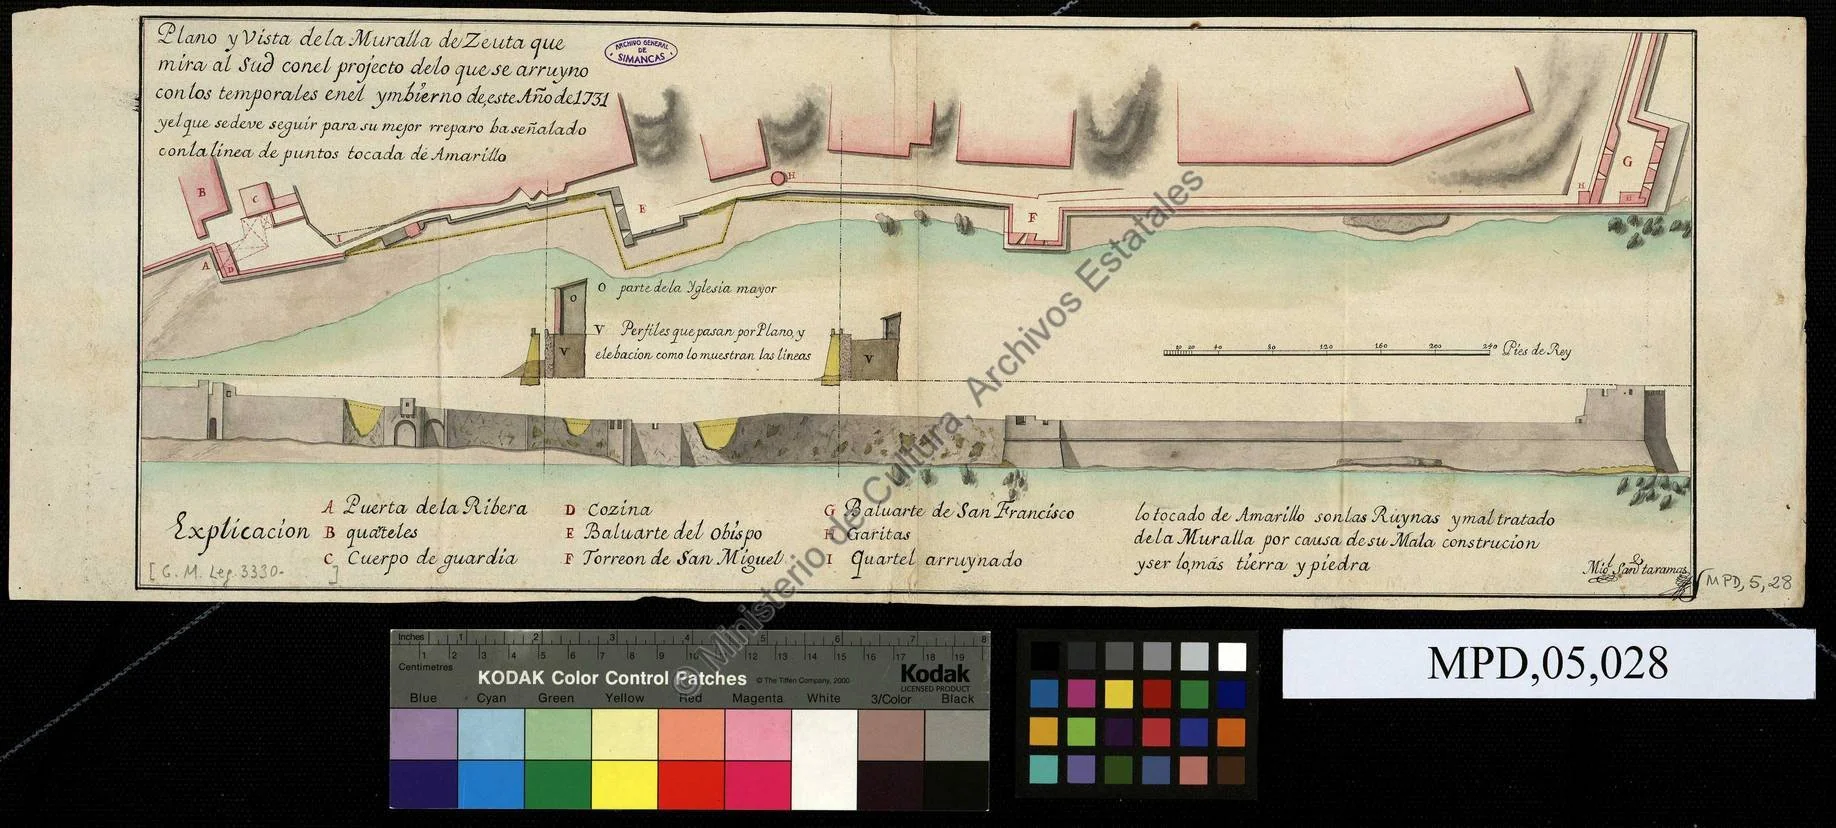 Plano y Vista dela Muralla de Zeuta que
mira al Sud conel projecto delo que se arruyno
con los temporales enel ymbierno de este Año de 1731
yel que se deve seguir para su mejor rreparo ba señalado
con la linea de puntos tocada de Amarillo
ARCHIVO GENERAL
DE
SIMANCAS
B
C
I
A
D
E
H
F
H
G
H
O
O parte dela Yglesia mayor
V Perfiles que pasan por Plano, y
elebacion como lo muestran las lineas
V
V
10 20 40 80 120 160 200 240 Pies de Rey
Explicacion
A Puerta dela Ribera
B quarteles
C Cuerpo de guardia
D Cozina
E Baluarte del obispo
F Torreon de San Miguel
G Baluarte de San Francisco
H Garitas
I Quartel arruynado
lo tocado de Amarillo son las Ruynas y mal tratado
de la Muralla por causa de su Mala construcion
y ser lo mas tierra y piedra
Migl. Santaramas
[G. M. Leg. 3330- ]
MPD, 5, 28
© Ministerio de Cultura, Archivos Estatales
Inches 1 2 3 4 5 6 7 8
Centimetres 1 2 3 4 5 6 7 8 9 10 11 12 13 14 15 16 17 18 19
KODAK Color Control Patches © The Tiffen Company, 2000
Kodak
LICENSED PRODUCT
Blue Cyan Green Yellow Red Magenta White 3/Color Black
MPD,05,028